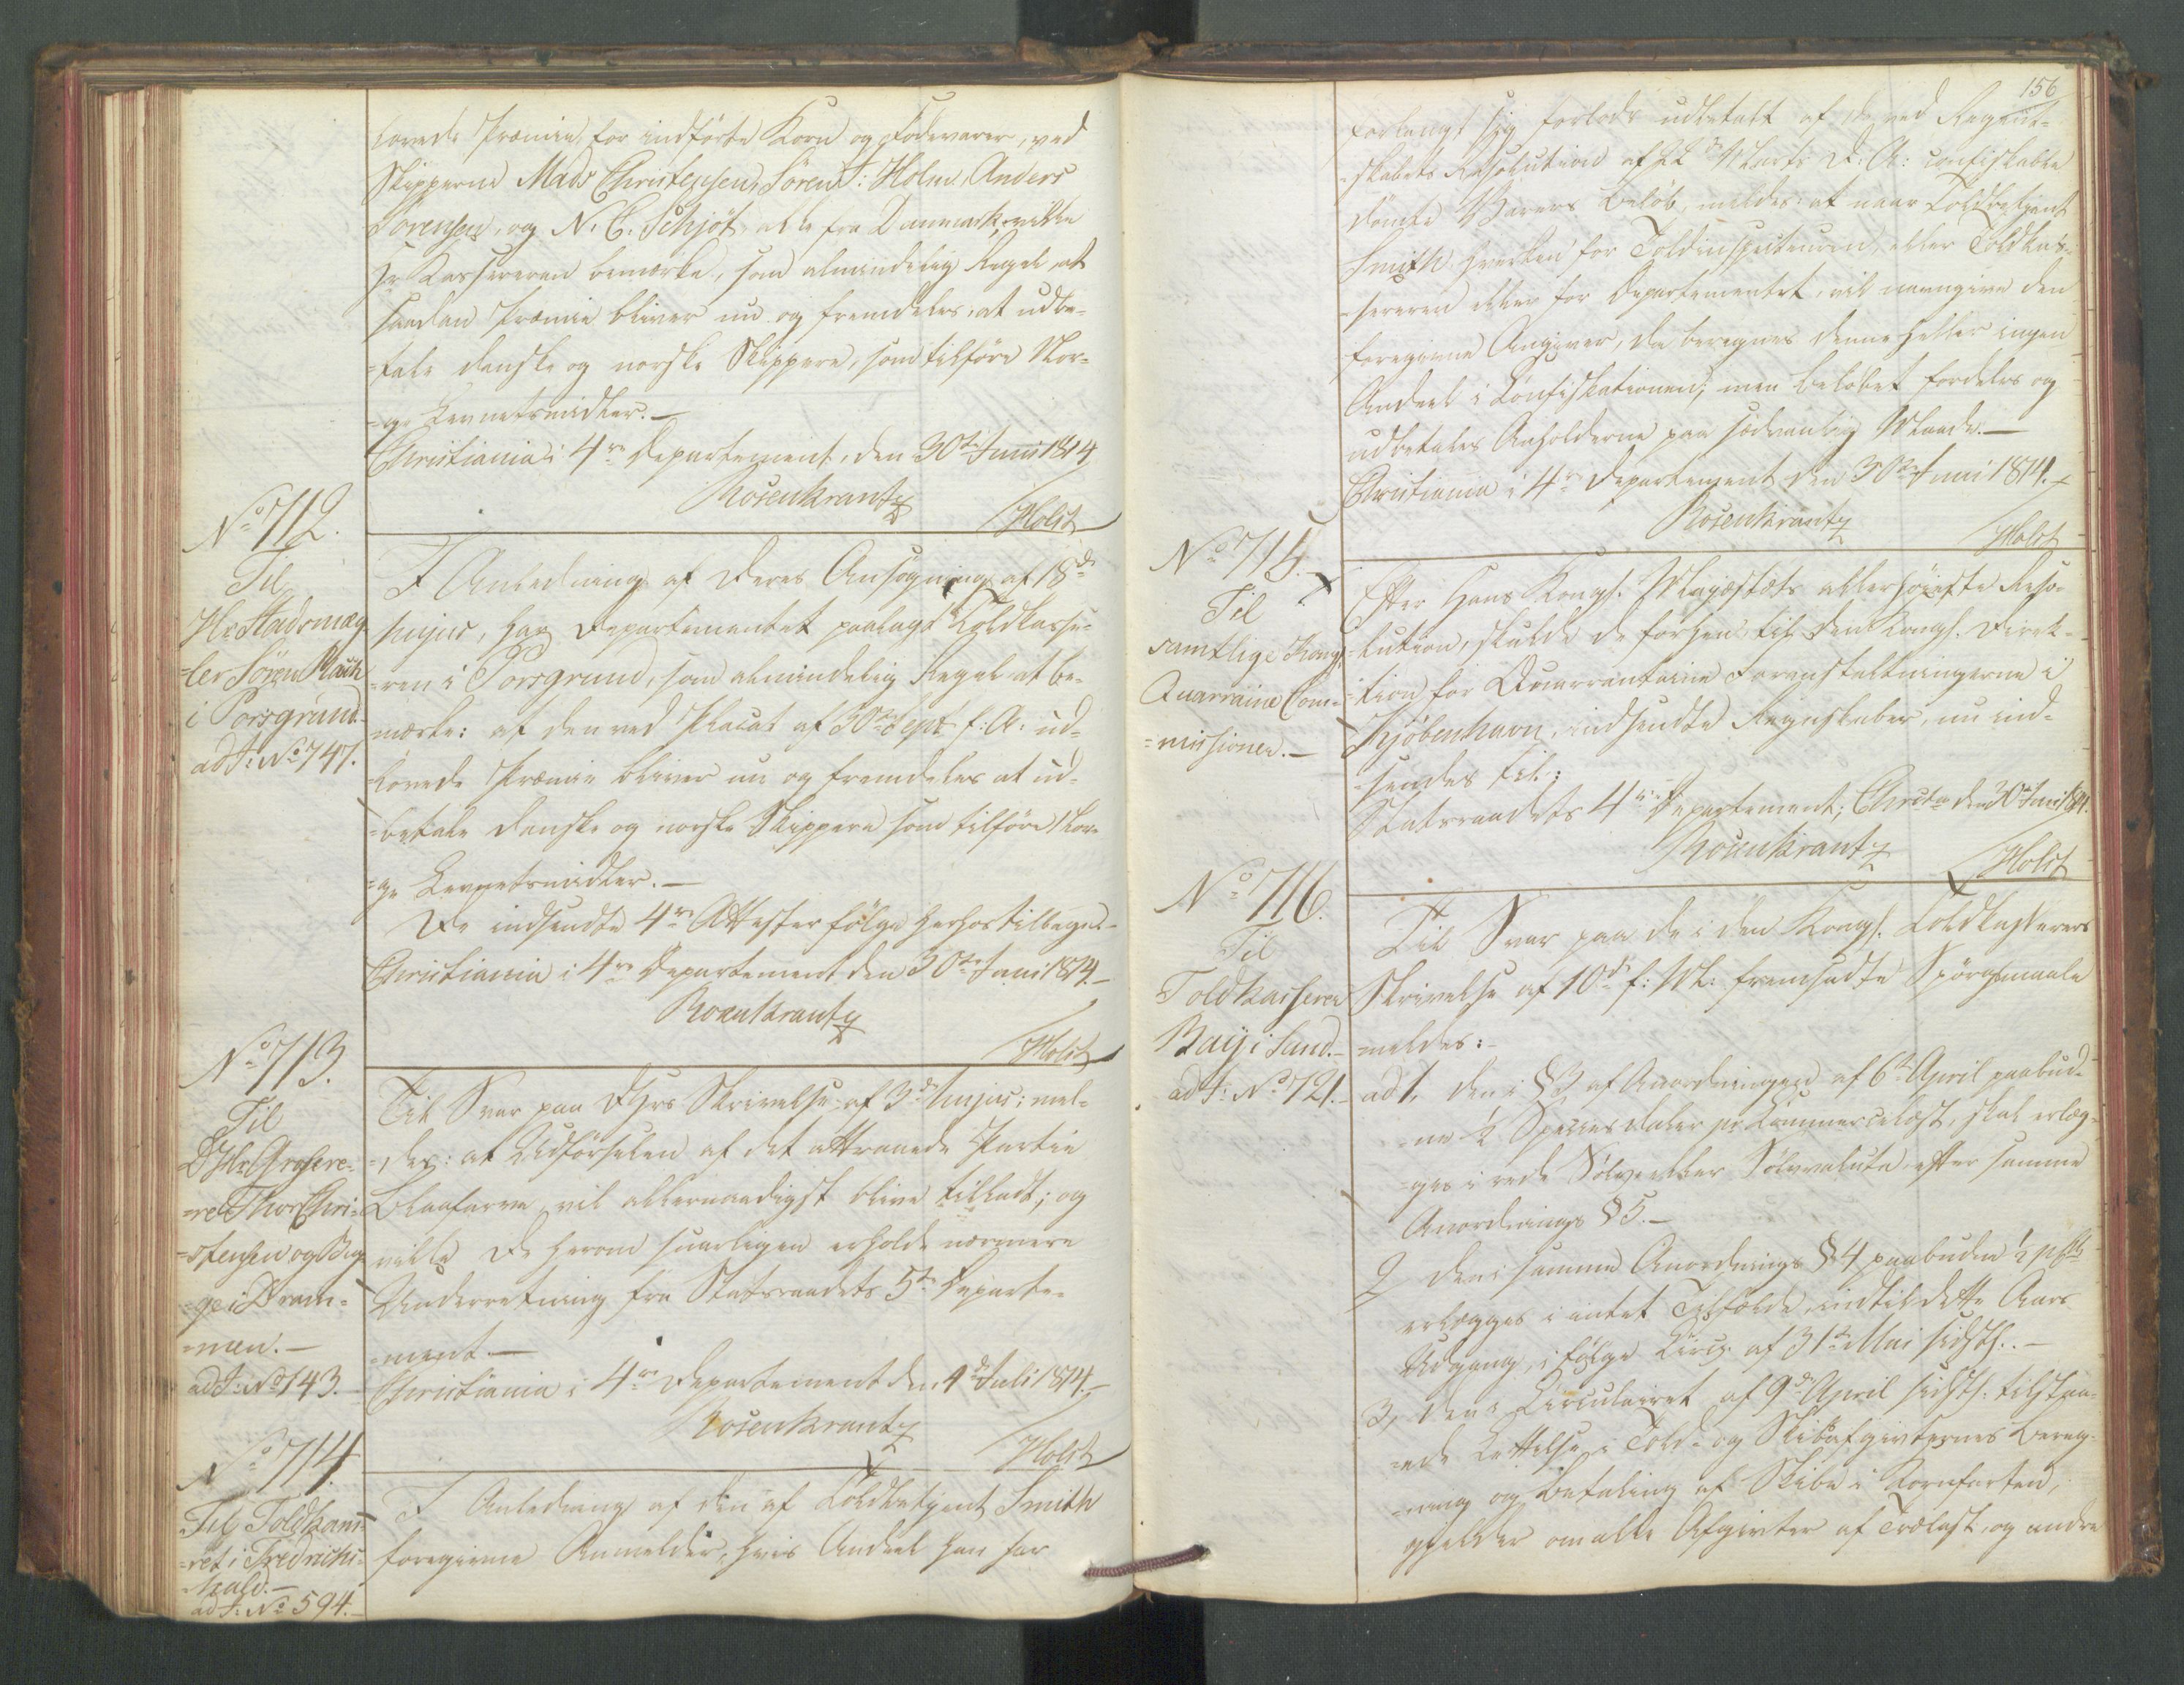 lovede Præmie, for indförte Korn og Födevarer, ved
Skipperne Mads Christensen, Sören J: Holm, Anders
Sörensen, og N. C. Schjöt, alle fra Danmark, ville
Hr Kassereren bemærke, som almindelig Regel, at
saadan Præmie bliver nu og fremdeles, at udbe-
=tale danske og norske Skippere, som tilföre Nor-
=ge Levnetsmidler.—
Christiania i 4re Departement, den 30te Juni 1814
Rosenkrantz
/Holst
No 712.
Til
Hr Stadsmæg-
=ler Sören Rauch
i Porsgrund.
ad J: No 747.
I Anledning af Deres Ansögning af 18de
hujus, har Departementet paalagt Toldkasse-
=ren i Porsgrund, som almindelig Regel at be-
mærke: at den ved Placat af 30te Sept f: A: ud-
lovede Præmie bliver nu og fremdeles at ud-
=betale danske og norske Skippere som tilföre Nor-
=ge Levnetsmidler.—
De indsendte 4re Attester fölge herhos tilbage.—
Christiania i 4re Departement den 30te Juni 1814.—
Rosenkrantz
/Holst
No 713.
Til
DHr Grosere-
=re Thor Chri-
=stensen og Bug
=ge i Dram-
=men.—
ad J: No 143.
Til Svar paa DHrs Skrivelse af 3de hujus: mel-
=des: at Udförselen af det attraaede Partie
Blaafarve, vil allernaadigst blive tilladt; og
ville De herom snarligen erholde nærmere
Underretning fra Statsraadets 5te Departe-
=ment.—
Christiania i 4re Departement den 4de Juli 1814.—
Rosenkrantz
/Holst
No 714.
Til Toldkam-
=ret i Fredrichs-
=hald.—
ad J: No 594.—
I Anledning af den af Toldbetjent Smith
foregivne Anmelder, hvis Andeel han har
156
forlangt sig forlods udbetalt af de ved Regent-
=skabets Resolution af 22de Marts d: A: confiskable
dömte Varers belöb, meldes: at naar Toldbetjent
Smith hverken for Toldinspecteuren, eller Toldkas-
=sereren eller for Departementet, vil navngive den
foregivne Angiver, da beregnes denne heller ingen
Andeel i Confiskationen; men belöbet fordeles og
udbetales Anholderne paa sædvanlig Maade.—
Christiania i 4re Departement den 30te Juni 1814.
Rosenkrantz
/Holst
No 715.
Til
samtlige Kongl.
Quarraine Com-
=missioner.—
Efter Hans Kongl. Majestæts allerhöieste Reso-
=lution, skulde de forhen til den Kongl. Direk-
=tion for Quarrantaine Foranstaltningerne i
Kjöbenhavn, indsendte Regnskaber, nu ind-
=sendes til:
Statsraadets 4re Departement; Christa den 30te Juni 1814.
Rosenkrantz
/Holst
No 716.
Til
Toldkasserer
Bay i Sund.—
ad J: No 721.—
Til Svar paa de i den Kongl. Toldkasserers
Skrivelse af 10de f: M: fremsatte Spörgsmaale
meldes:—
ad 1, den i § 3 af Anordningen af 6te April paabud-
=ne ½ Speciesdaler pr Commercelæst, skal erlæg-
=ges i rede Sölv eller Sölvvaluta, efter samme
Anordnings § 5.—
2 den i samme Anordnings § 4 paabudne ½ pCt
erlægges i intet Tilfælde, indtil dette Aars
Udgang, i fölge Circ. af 31te Mai sidstl..—
3, den i Circulairet af 9de April sidstl. tilstaa-
=ede Lettelse i Told- og Skibsafgivternes bereg-
=ning og betaling af Skibe i Kornfarten,
gjelder om alle Afgivter af Trælast, og andre